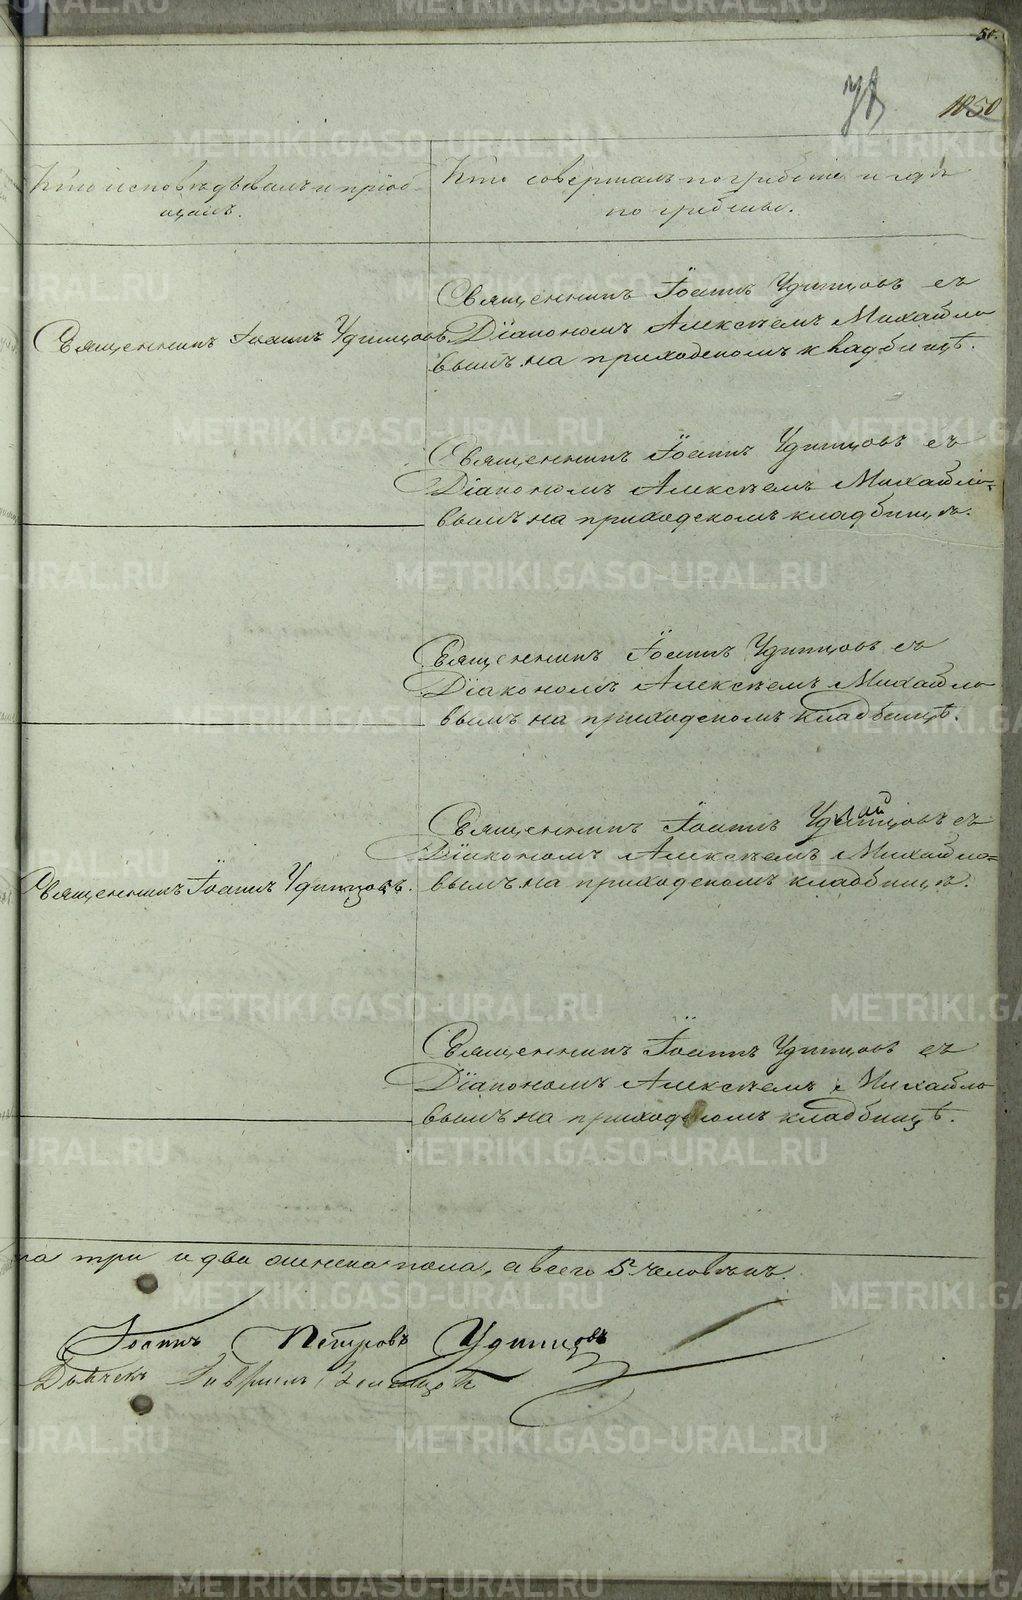 50.
1050
Кто исповѣдывалъ и пріоб-
щалъ.
Кто совершалъ погребеніе и гдѣ
погребены.
Священникъ Іоаннъ Удинцовъ.
Священникъ Іоаннъ Удинцовъ съ
Діакономъ Алексѣемъ Михайло
вымъ на приходскомъ кладбищѣ.
Священникъ Іоаннъ Удинцовъ съ
Діакономъ Алексѣемъ Михайло-
вымъ на приходскомъ кладбищѣ.
Священникъ Іоаннъ Удинцовъ съ
Діакономъ Алексѣемъ Михайло
вымъ на приходскомъ кладбищѣ.
Священникъ Іоаннъ Удинцовъ.
Священникъ Іоаннъ Удинцовъ съ
Діакономъ Алексѣемъ Михайло=
вымъ на приходскомъ кладбищѣ.
Священникъ Іоаннъ Удинцовъ съ
Діакономъ Алексѣемъ Михайло
вымъ на приходскомъ кладбищѣ.
три и два женска пола, а всего 5 человѣкъ.
Іоаннъ Петровъ Удинцовъ
Дьячекъ Гавріилъ
METRIKI.GASO-URAL.RU